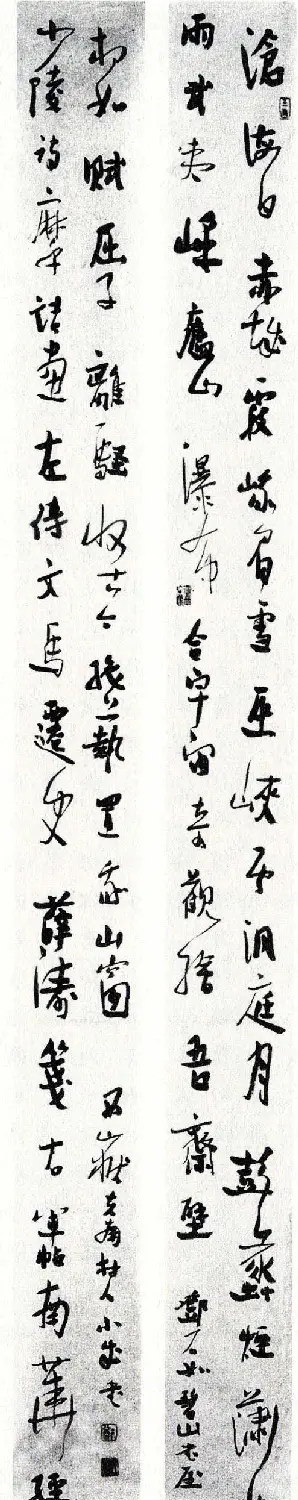 滄海日赤城霞峨眉雪巫峽雲洞庭月彭蠡煙瀟
雨武夷峰廬山瀑布合宇宙奇觀繪吾齋壁 鄧石如碧山書屋
少陵詩摩詰畫左傳文馬遷史薛濤箋右軍帖南華經
相如賦屈子離騷收古今絕藝置我山窗